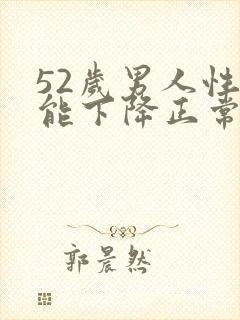 52岁男人性
能下降正常
郭晨然